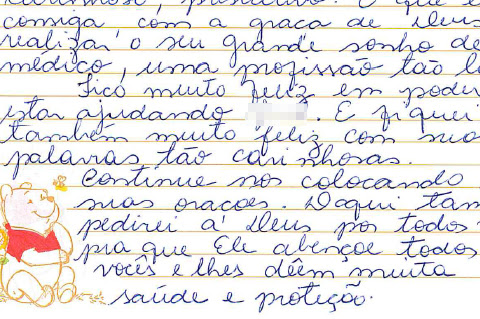 O que
consiga com a graça de Deus
realizar o seu grande sonho de
médico, uma profissão tão l
Fico muito feliz em poder
estar ajudando . E fiquei
também muito feliz com sua
palavras tão carinhosas.
Continue nos colocando
suas orações. Daqui tam
pedirei à Deus por todos
pra que Ele abençoe todos
vocês e lhes dêem muita
saúde e proteção.